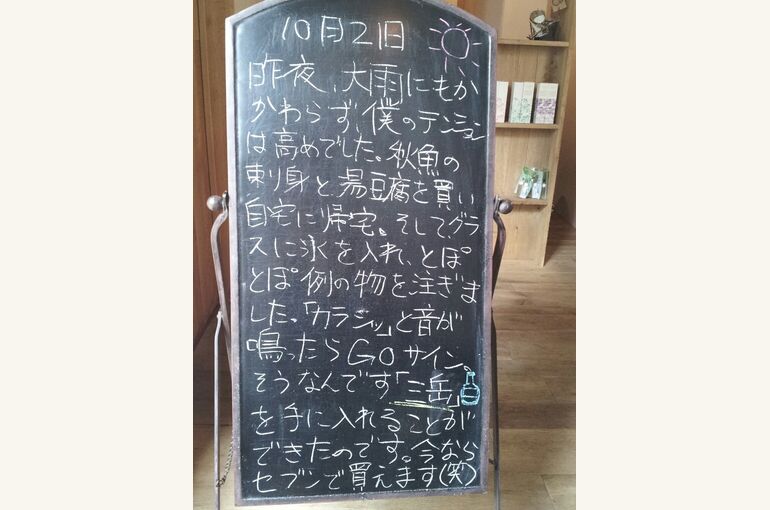 10月2日
昨夜、大雨にもか
かわらず、僕のテンション
は高めでした。秋魚の
刺り身と、湯豆腐を買い
自宅に帰宅。そして、グラ
スに氷を入れ、とぽ
とぽ例の物を注ぎま
した。「カラシッ」と音が
鳴ったらGOサイン。
そうなんです「三岳」
を手に入れることが
できたのです。今なら
セブンで買えます(笑)